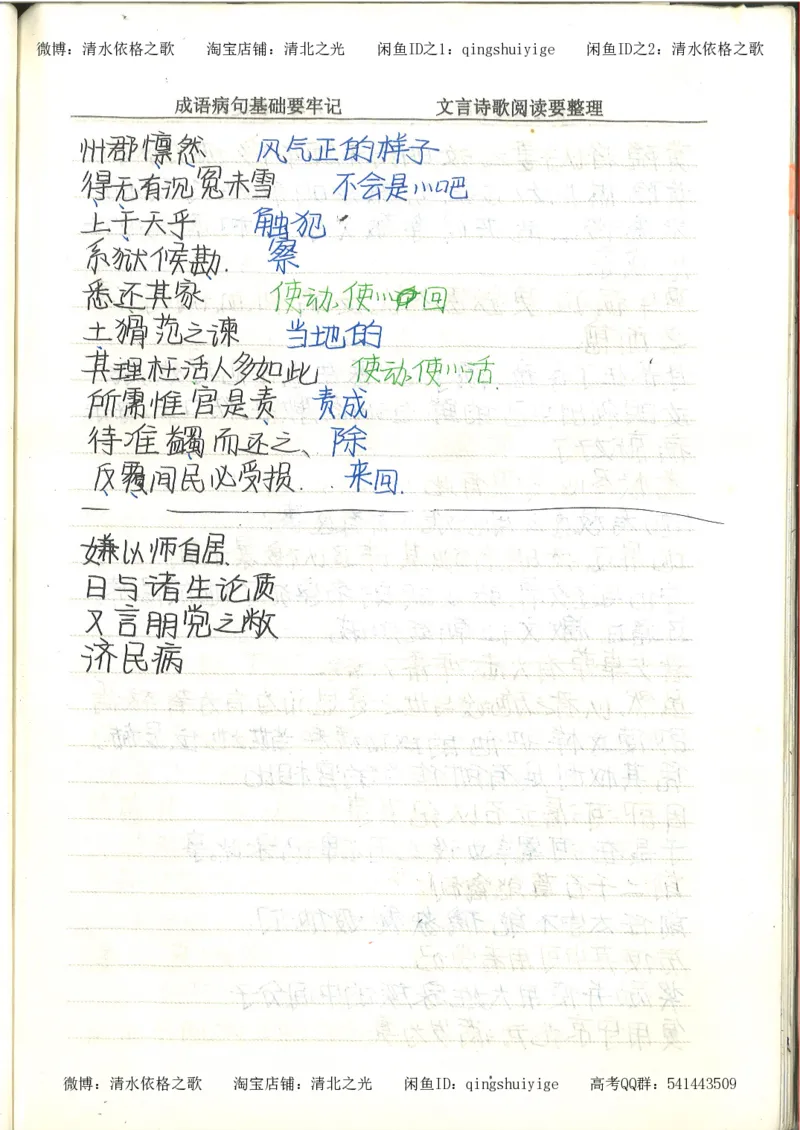 微博：清水依格之歌 淘宝店铺：清北之光 闲鱼ID之1：qingshuiyige 闲鱼ID之2：清水依格之歌
成语病句基础要牢记 文言诗歌阅读要整理
州郡懔然 风气正的样子
得无有沉冤未雪 不会是心吧
上干天乎 触犯
系狱候勘. 察
悉还其家 使动、使心回
土猾范之谏 当地的
其理枉活人多如此 使动、使心活
所需惟官是责 责成
待准蠲而还之、除
反覆间民必受损. 来回.
嫌以师自居.
日与诸生论质
又言朋党之敝
济民病
微博：清水依格之歌 淘宝店铺：清北之光 闲鱼ID：qingshuiyige 高考QQ群：541443509